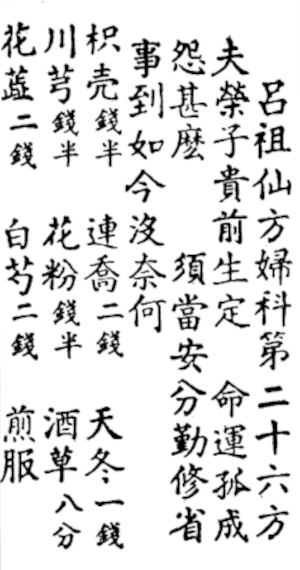 呂祖仙方婦科第二十六方
夫榮子貴前生定 命運孤成
怨甚麽 須當安分勤修省
事到如今沒奈何
枳壳錢半 連喬二錢 天冬一錢
川芎錢半 花粉錢半 酒草八分
花蓝二錢 白芍二錢 煎服